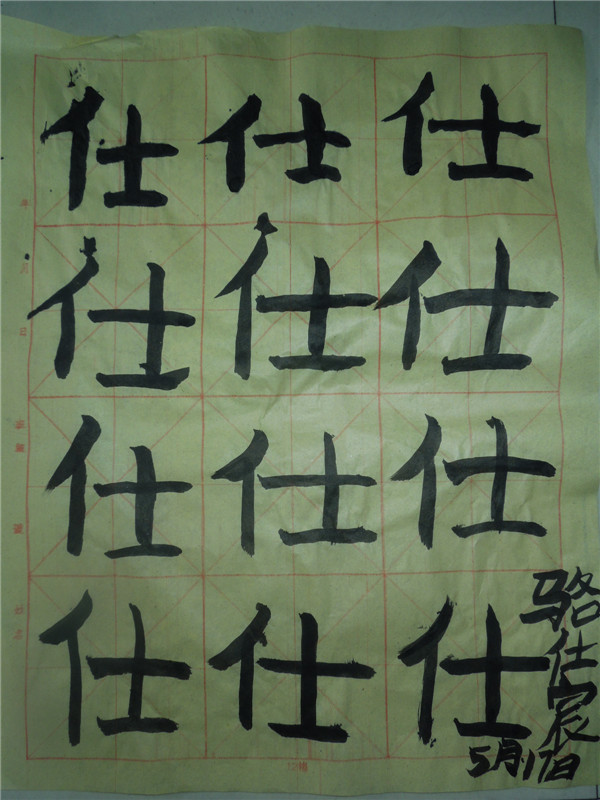 仕仕仕
仕仕仕
仕仕仕
仕仕仕
骆仕宸
5月17日